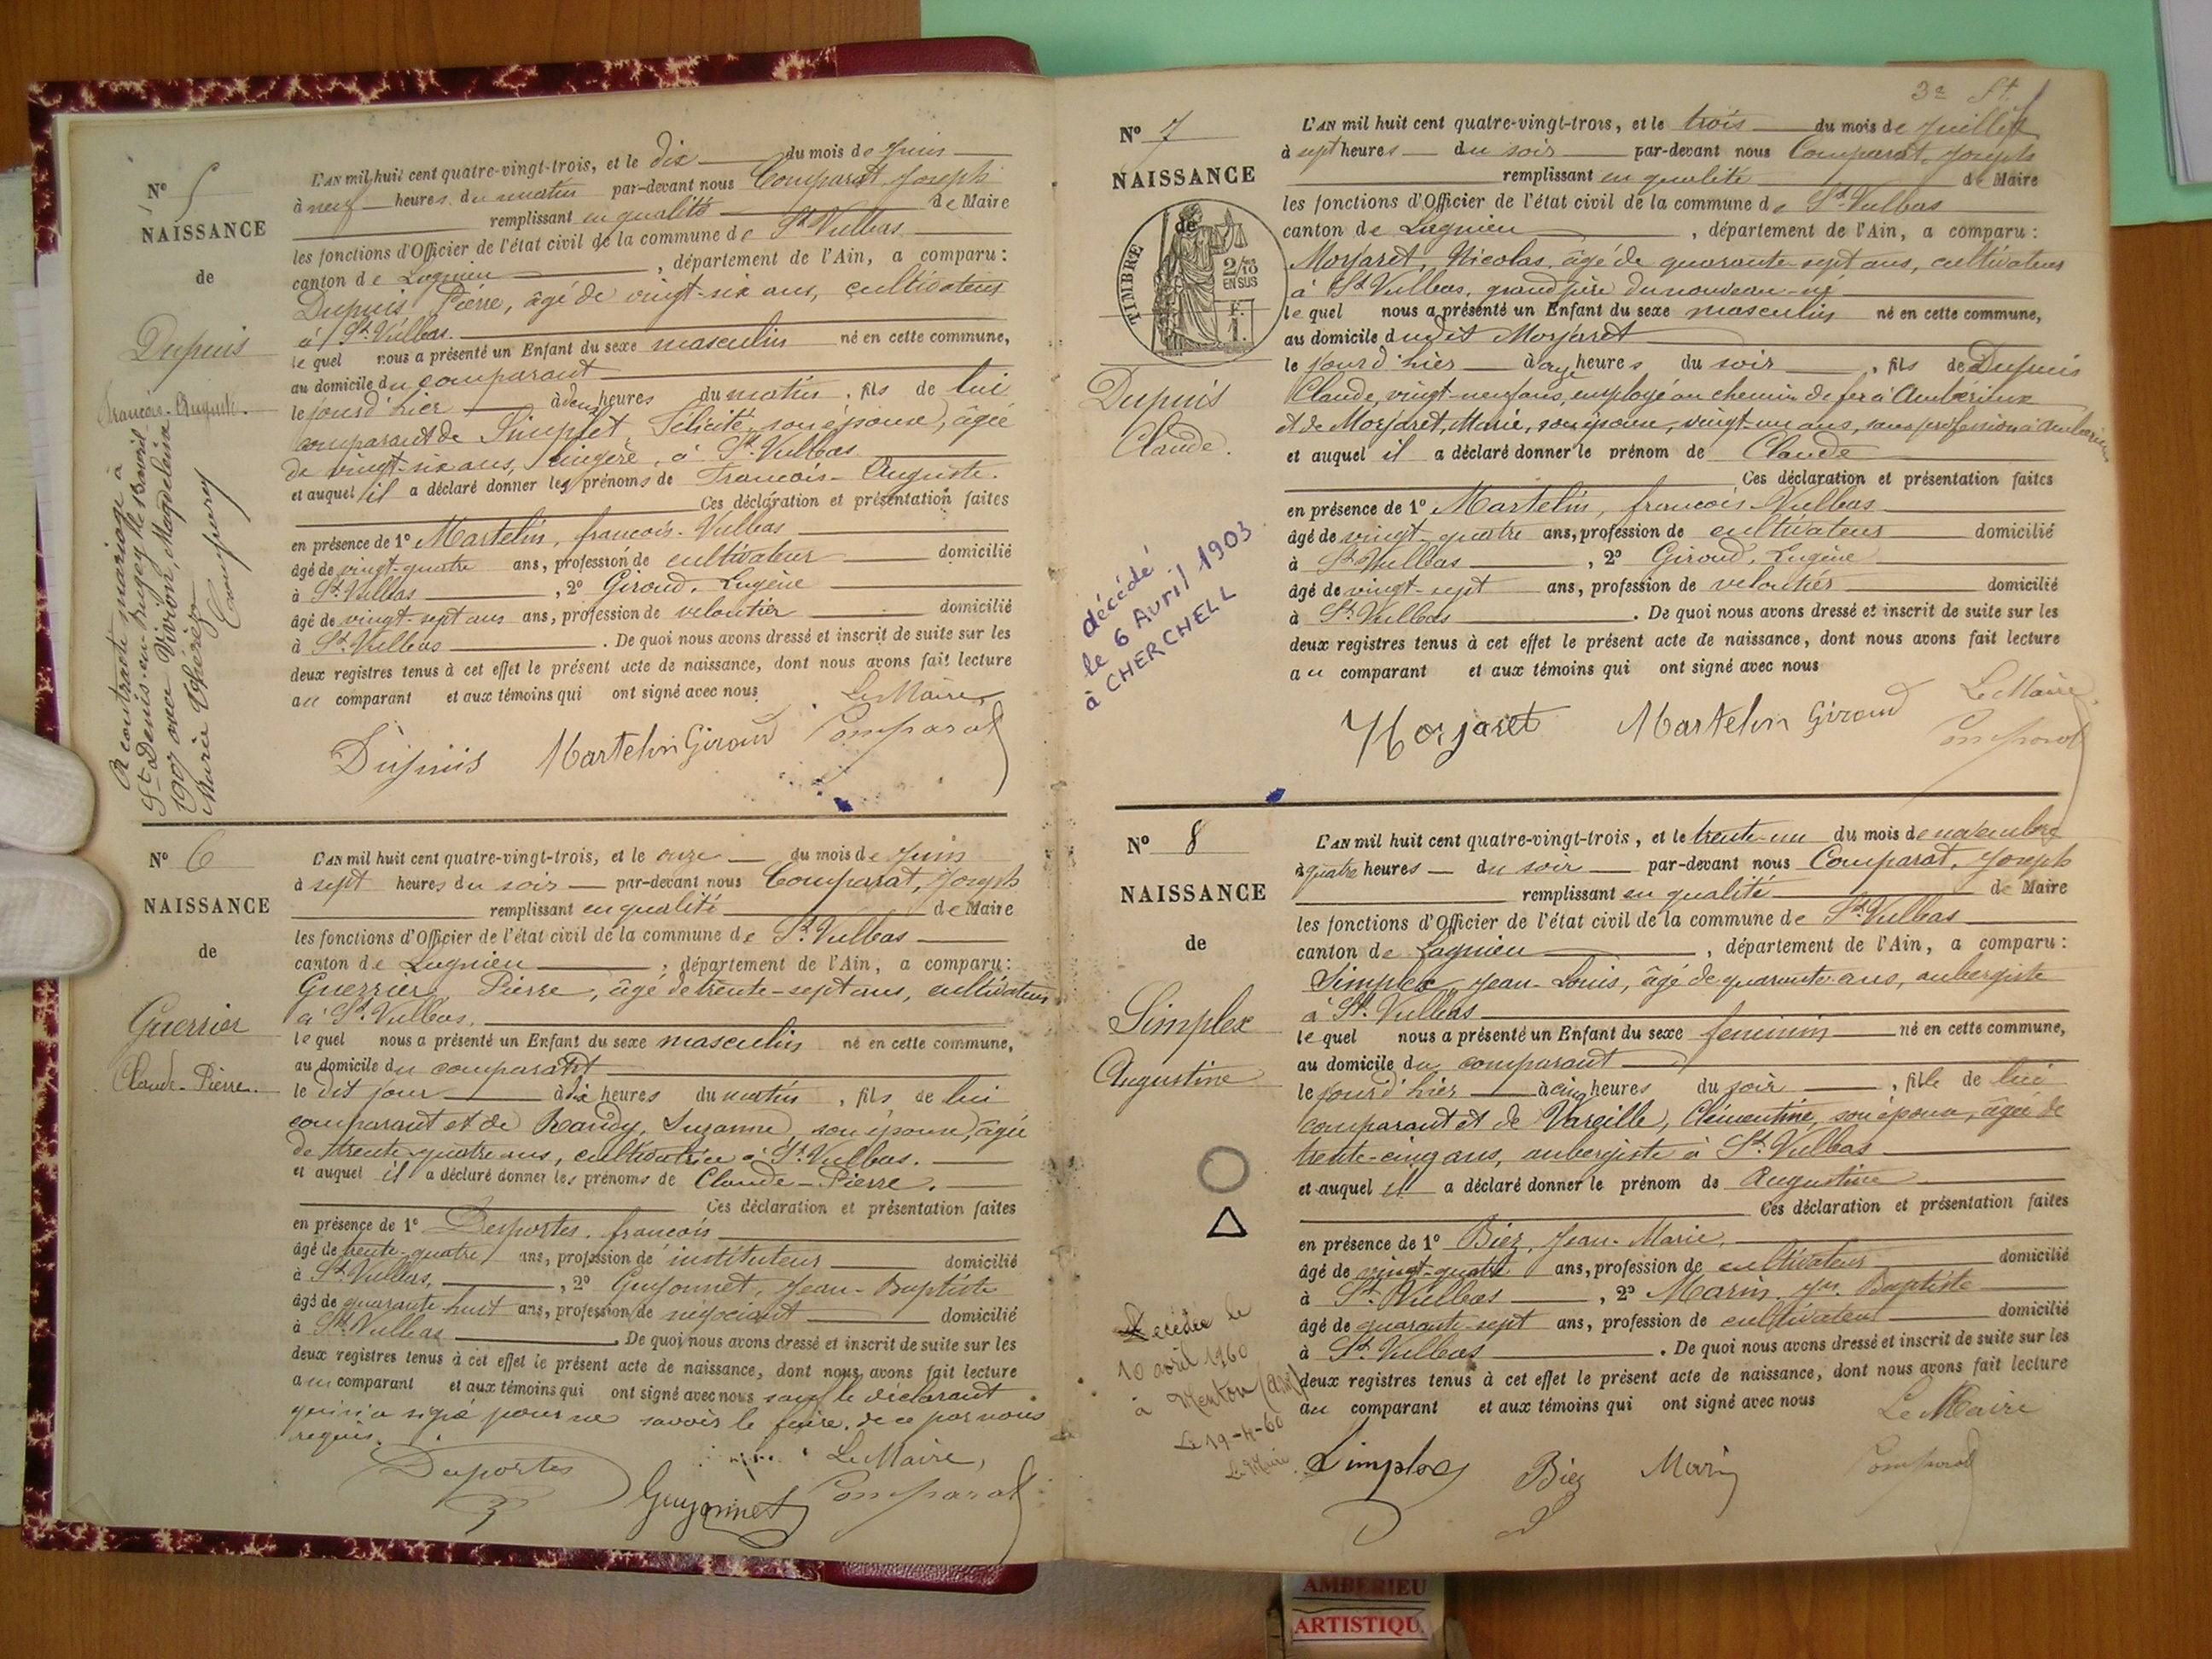 Nº 5
NAISSANCE
de
Dupuis
François-Auguste.
A contracté mariage à
St Denis-en-Bugey le 13 avril
1907 avec Vivion, Magdeleine
Marie
L'AN mil huit cent quatre-vingt-trois, et le dix du mois de Juin
à neuf heures du matin par-devant nous Comparat, Joseph
remplissant en qualité de Maire
les fonctions d'Officier de l'état civil de la commune de St Vulbas
canton de Lagnieu, département de l'Ain, a comparu :
Dupuis Pierre, âgé de vingt-six ans, cultivateur
à St Vulbas.
lequel nous a présenté un Enfant du sexe masculin né en cette commune,
au domicile du comparant
le jourd'hier à deux heures du matin, fils de lui
comparant de Simplet, Félicité, son épouse, âgée
de vingt-six ans, lingère, à St Vulbas
et auquel il a déclaré donner les prénoms de François-Auguste.
Ces déclaration et présentation faites
en présence de 1º Martelin, françois-Vulbas
âgé de vingt-quatre ans, profession de cultivateur domicilié
à St Vulbas, 2º Giroud, Eugène
âgé de vingt-sept ans ans, profession de veloutier domicilié
à St Vulbas. De quoi nous avons dressé et inscrit de suite sur les
deux registres tenus à cet effet le présent acte de naissance, dont nous avons fait lecture
au comparant et aux témoins qui ont signé avec nous
Le Maire,
Dupuis Martelin Giroud Comparat
Nº 6
NAISSANCE
de
Guerrier
Claude-Pierre.
L'AN mil huit cent quatre-vingt-trois, et le onze du mois de Juin
à sept heures du soir par-devant nous Comparat, Joseph
remplissant en qualité de Maire
les fonctions d'Officier de l'état civil de la commune de St Vulbas
canton de Lagnieu, département de l'Ain, a comparu :
Guerrier, Pierre, âgé de trente-sept ans, cultivateur
à St Vulbas.
lequel nous a présenté un Enfant du sexe masculin né en cette commune,
au domicile du comparant
le dit jour à dix heures du matin, fils de lui
comparant et de Randy, Suzanne, son épouse, âgée
de trente-quatre ans, cultivatrice à St Vulbas.
et auquel il a déclaré donner les prénoms de Claude-Pierre.
Ces déclaration et présentation faites
en présence de 1º Desportes, françois
âgé de trente-quatre ans, profession de instituteur domicilié
à St Vulbas, 2º Guyonnet, Jean-Baptiste
âgé de quarante-huit ans, profession de négociant domicilié
à St Vulbas. De quoi nous avons dressé et inscrit de suite sur les
deux registres tenus à cet effet le présent acte de naissance, dont nous avons fait lecture
au comparant et aux témoins qui ont signé avec nous sauf le déclarant
qui n'a signé pour ne savoir le faire, de ce par nous
requis.
Le Maire,
Desportes Guyonnet Comparat
3e St.
Nº 7
NAISSANCE
de
TIMBRE
2/10
EN SUS
F.
1.
Dupuis
Claude.
décédé
le 6 Avril 1903
à CHERCHELL
L'AN mil huit cent quatre-vingt-trois, et le trois du mois de Juillet
à sept heures du soir par-devant nous Comparat, Joseph
remplissant en qualité de Maire
les fonctions d'Officier de l'état civil de la commune de St Vulbas
canton de Lagnieu, département de l'Ain, a comparu :
Morjaret, Nicolas, âgé de quarante-sept ans, cultivateur
à St Vulbas, grand père du nouveau-né
lequel nous a présenté un Enfant du sexe masculin né en cette commune,
au domicile dudit Morjaret
le jourd'hier à onze heures du soir, fils de Dupuis
Claude, vingt-neuf ans, employé au chemin de fer à Ambérieux
et de Morjaret, Marie, son épouse, vingt-un ans, sans profession à Ambérieux
et auquel il a déclaré donner le prénom de Claude
Ces déclaration et présentation faites
en présence de 1º Martelin, françois Vulbas
âgé de vingt-quatre ans, profession de cultivateur domicilié
à St Vulbas, 2º Giroud, Eugène
âgé de vingt-sept ans, profession de veloutier domicilié
à St Vulbas. De quoi nous avons dressé et inscrit de suite sur les
deux registres tenus à cet effet le présent acte de naissance, dont nous avons fait lecture
au comparant et aux témoins qui ont signé avec nous
Le Maire,
Morjaret Martelin Giroud Comparat
Nº 8
NAISSANCE
de
Simplex
Augustine
Décédée le
10 avril 1960
à Menton (a.m)
Le 19-4-60
Le Maire
L'AN mil huit cent quatre-vingt-trois, et le trente-un du mois de novembre
à quatre heures du soir par-devant nous Comparat, Joseph
remplissant en qualité de Maire
les fonctions d'Officier de l'état civil de la commune de St Vulbas
canton de Lagnieu, département de l'Ain, a comparu :
Simplex, Jean-Louis, âgé de quarante ans, aubergiste
à St Vulbas
lequel nous a présenté un Enfant du sexe feminin né en cette commune,
au domicile du comparant
le jourd'hier à cinq heures du soir, fille de lui
comparant et de Vareille, Clémentine, son épouse, âgée de
trente-cinq ans, aubergiste à St Vulbas
et auquel il a déclaré donner le prénom de Augustine
Ces déclaration et présentation faites
en présence de 1º Biez, Jean-Marie,
âgé de vingt-quatre ans, profession de cultivateur domicilié
à St Vulbas, 2º Marin, Jn. Baptiste
âgé de quarante-sept ans, profession de cultivateur domicilié
à St Vulbas. De quoi nous avons dressé et inscrit de suite sur les
deux registres tenus à cet effet le présent acte de naissance, dont nous avons fait lecture
au comparant et aux témoins qui ont signé avec nous
Le Maire
Simplex Biez Marin Comparat
AMBERIEU
ARTISTIQU